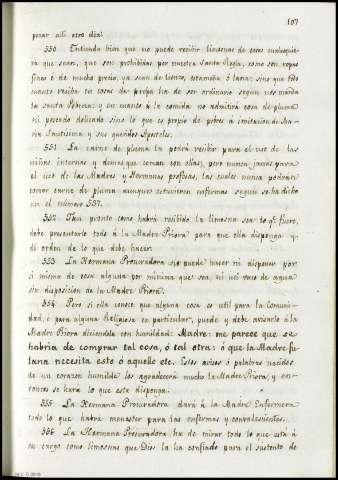 107
pasar allí otro dia.
550 Entienda bien que no puede recibir limosnas de cosas cualesquie-
ra que sean, que son prohibidas por nuestra Santa Regla, como son ropas
finas ó de mucho precio, ya sean de lienzo, estameña ó lana; sino que todo
cuanto reciba en cosas de ropa ha de ser ordinario segun nos manda
la santa Pobreza: y en cuanto á la comida no admitirá cosa de pluma
ni pescado delicado sino lo que es propio de pobres á imitacion de Ma-
ria Santisima y sus queridos Apostoles.
551 La carne de pluma la podrá recibir para el uso de las
niñas internas y demas que coman con ellas, pero nunca jamas para
el uso de las Madres y Hermanas profesas, las cuales nunca podrán
comer carne de pluma aunque estuvieren enfermas segun se ha dicho
en el número 537.
552 Tan pronto como habrá recibido la limosna sea lo que fuere,
debe presentarlo todo á la Madre Priora para que ella disponga y
dé orden de lo que debe hacer.
553 La Hermana Procuradora no puede hacer ni disponer por
si misma de cosa alguna por mínima que sea, ni un vaso de agua
sin disposicion de la Madre Priora.
554 Pero si ella conoce que alguna cosa es util para la Comuni-
dad, ó para alguna Religiosa en particular, puede y debe avisarlo á la
Madre Priora diciendola con humildad: Madre: me parece que se
habria de comprar tal cosa, ó tal otra: ó que la Madre fu-
lana necesita esto ó aquello etc. Estos avisos ó palabras nacidos
de un corazon humilde los agradecerá mucho la Madre Priora, y en-
tonces se hará lo que este disponga.
555 La Hermana Procuradora dará á la Madre Enfermera
todo lo que habrá menester para las enfermas y convalescientes.
556 La Hermana Procuradora ha de mirar todo lo que está á
su cargo como limosnas que Dios la ha confiado para el sustento de